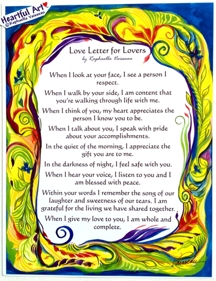 Heartful Art
© Raphaella Vaisseau
Love Letter for Lovers
by Raphaella Vaisseau
When I look at your face, I see a person I
respect.
When I walk by your side, I am content that
you're walking through life with me.
When I think of you, my heart appreciates the
person I know you to be.
When I talk about you, I speak with pride
about your accomplishments.
In the quiet of the morning, I appreciate the
gift you are to me.
In the darkness of night, I feel safe with you.
When I hear your voice, I listen to you and I
am blessed with peace.
Within your words I remember the song of our
laughter and sweetness of our tears. I am
grateful for the living we have shared together.
When I give my love to you, I am whole and
complete.